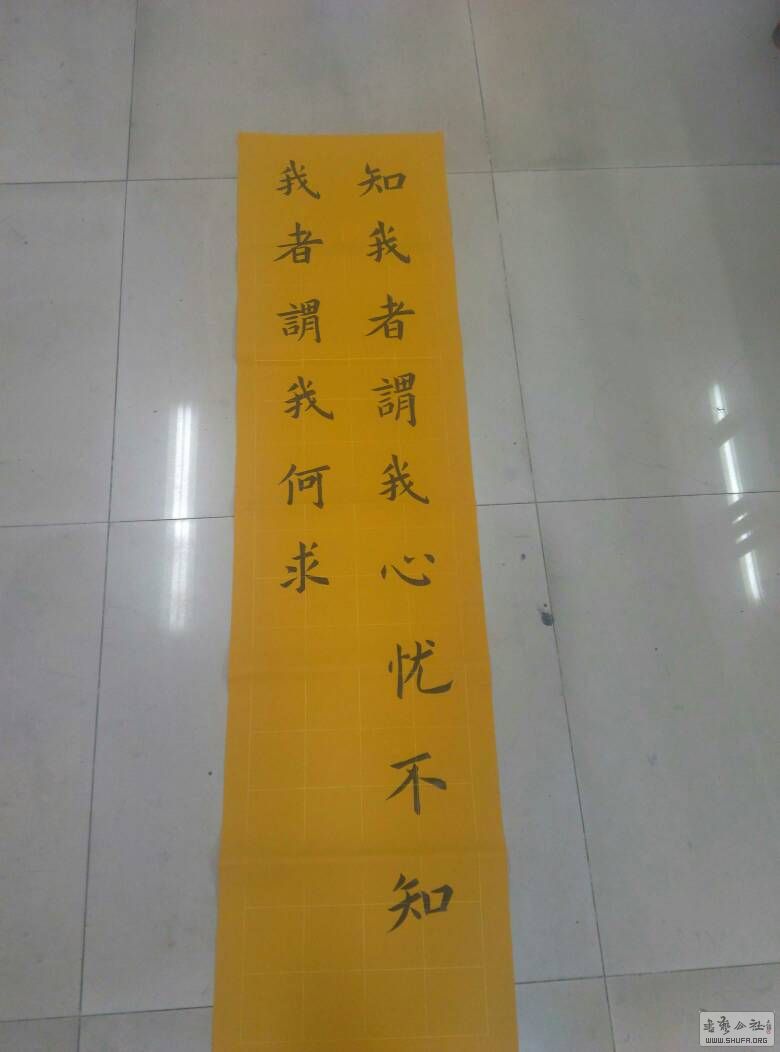 知我者謂我心忧不知
我者謂我何求
书艺公社
WWW.SHUFA.ORG